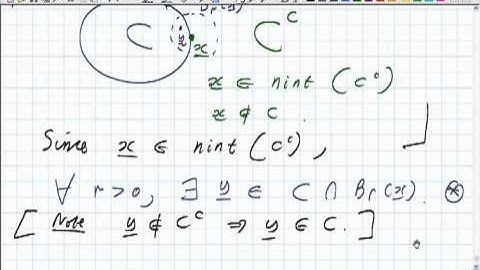 C
x
Cᶜ
x ∈ nint (Cᶜ)
x ∉ C .
Since x ∈ nint (Cᶜ) ,
∀ r>0, ∃ y ∈ C ∩ Br(x). ⊛
[ Note y ∉ Cᶜ ⇒ y ∈ C. ]